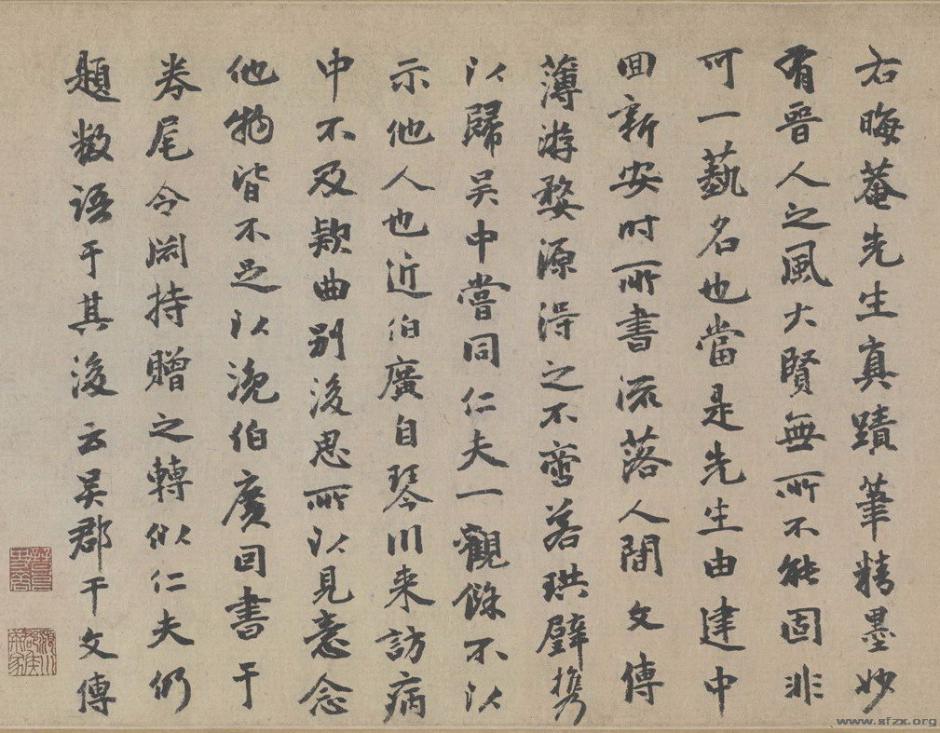 右晦菴先生真蹟筆精墨妙
有晉人之風大賢無所不能固非
可一藝名也當是先生由建中
回新安时所書流落人間文傳
薄游婺源得之不啻若珙璧攜
以歸吴中嘗同仁夫一觀餘不以
示他人也近伯廣自琴川来訪病
中不及欵曲别後思所以見意念
他物皆不足以浼伯廣回書于
卷尾令岡持贈之轉似仁夫仍
題数語于其後云吴郡干文傳
www.sfzx.org